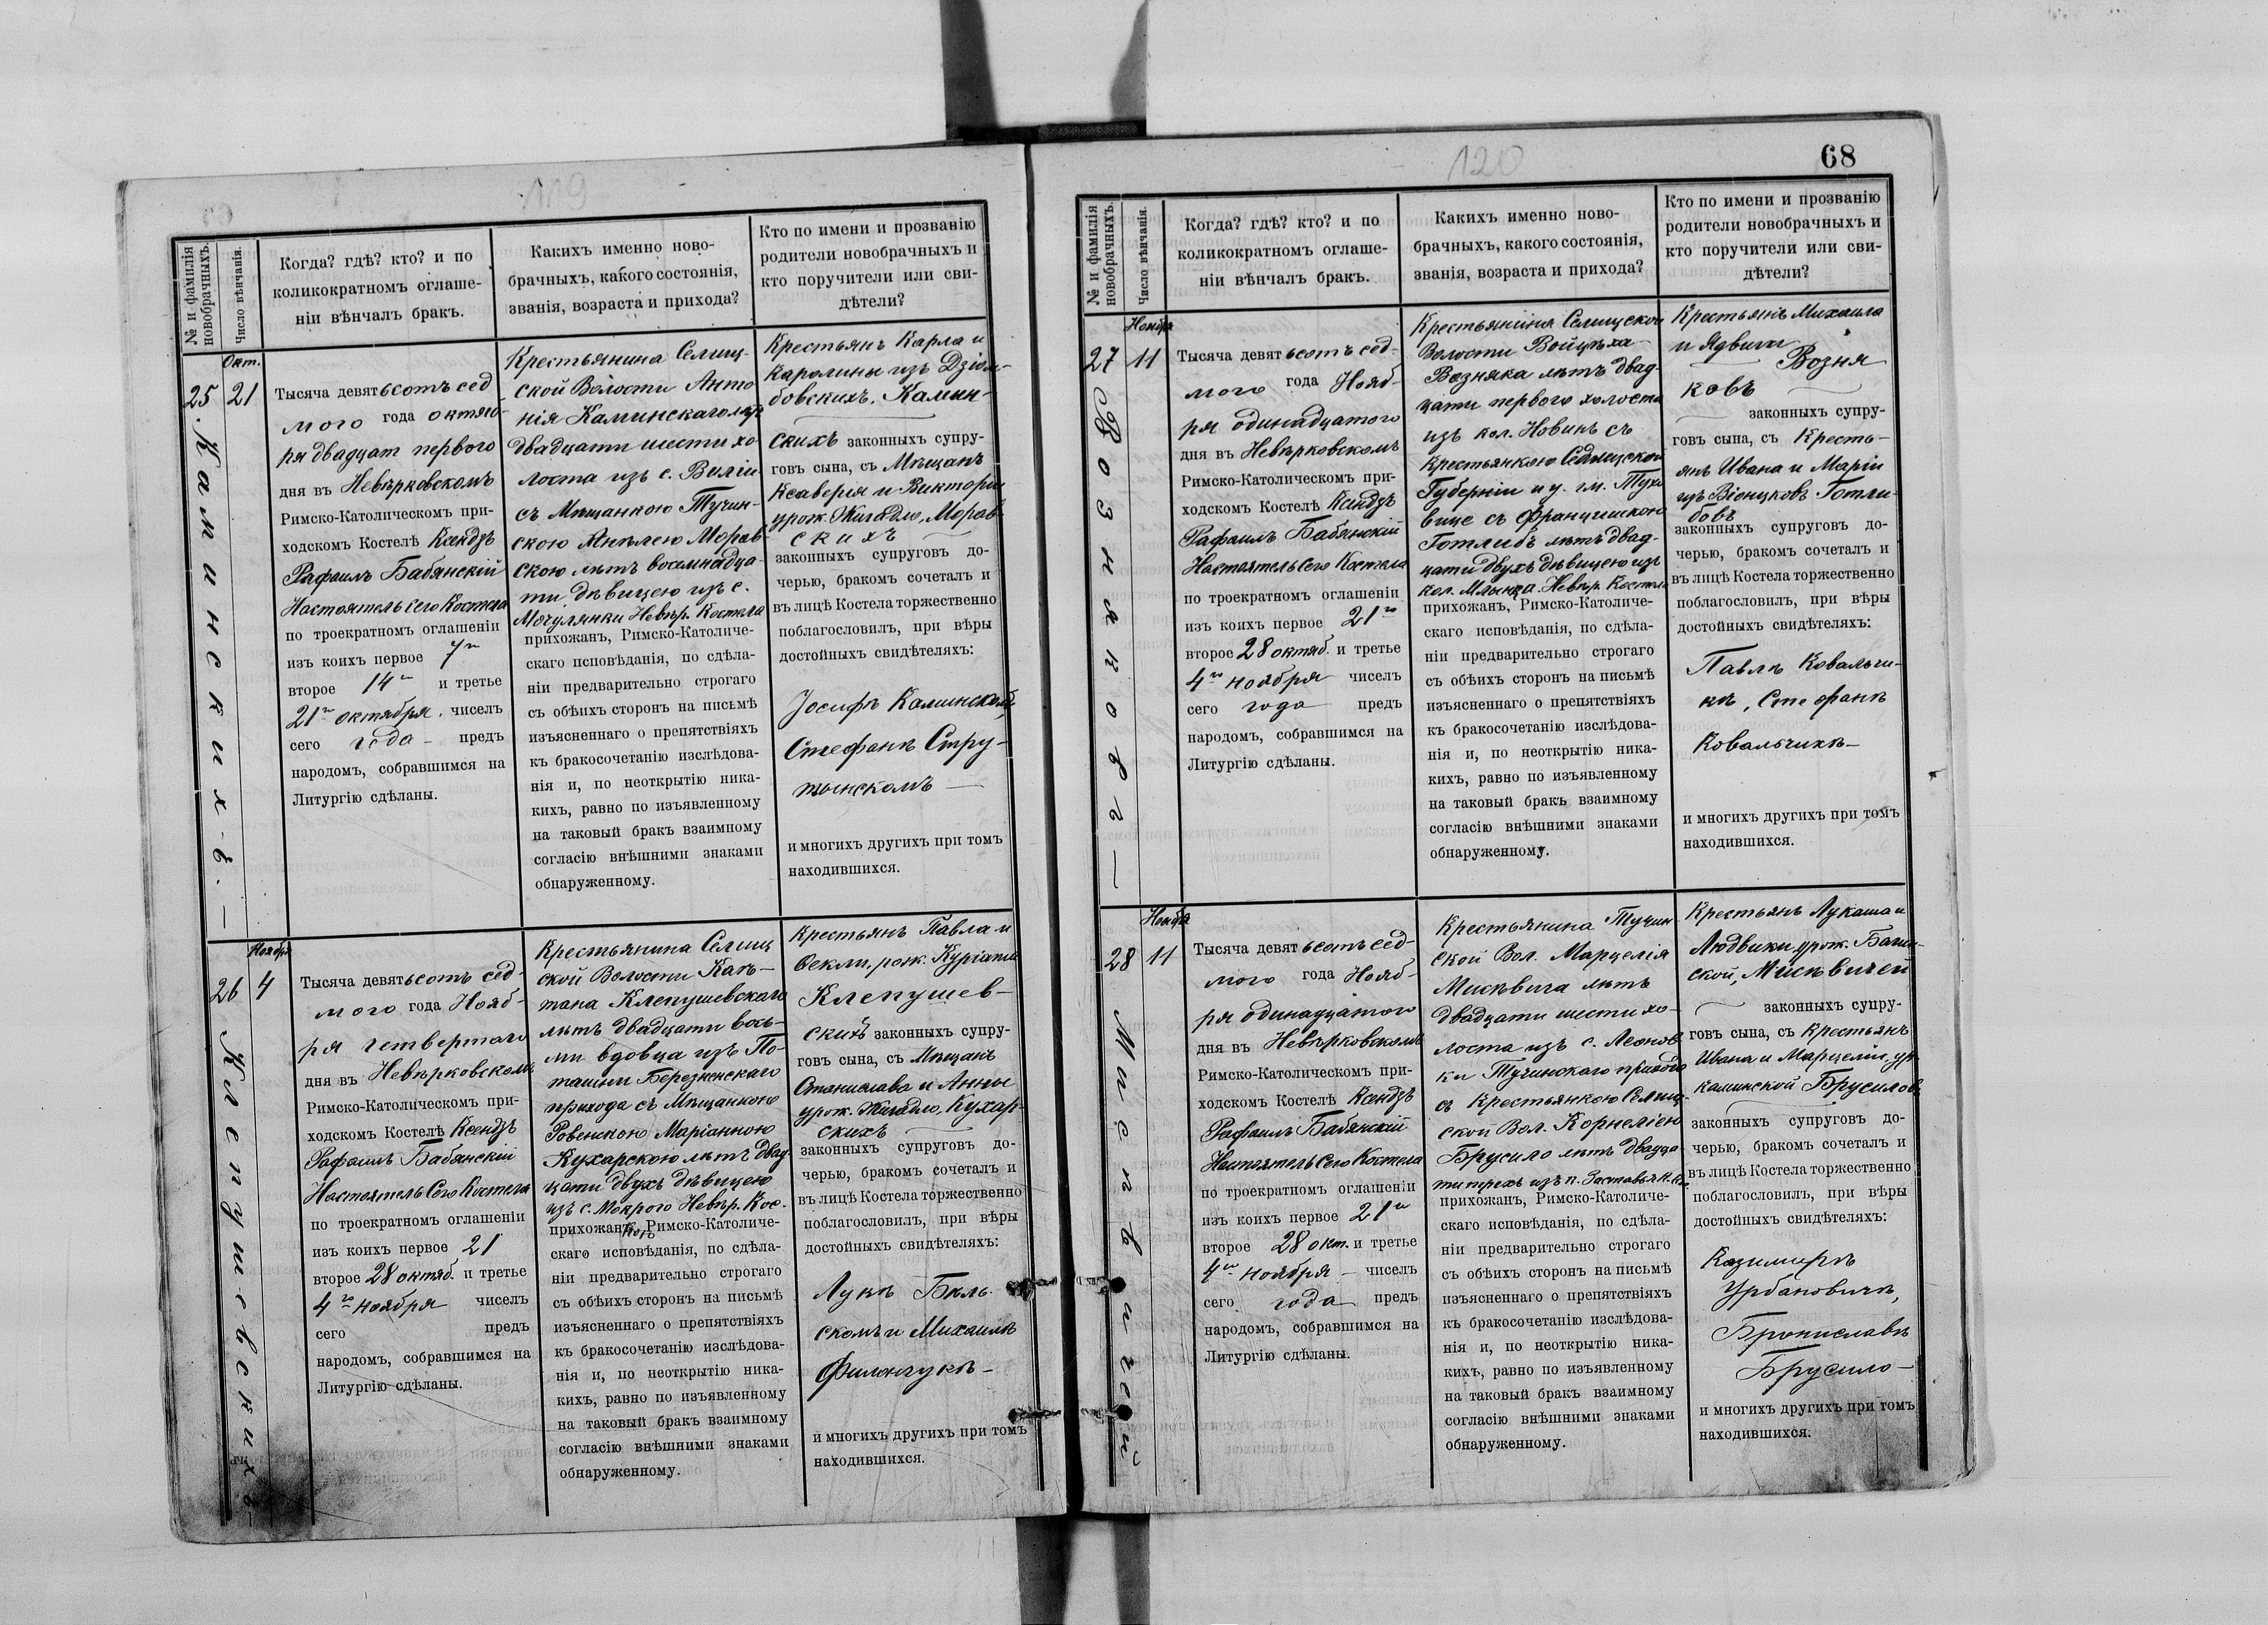 119
№ и фамилія
новобрачныхъ.
Число вѣнчанія.
Когда? гдѣ? кто? и по
коликократномъ оглаше-
ніи вѣнчалъ бракъ.
Какихъ именно ново-
брачныхъ, какого состоянія,
званія, возраста и прихода?
Кто по имени и прозванію
родители новобрачныхъ и
кто поручители или сви-
дѣтели?
25
Каминскихъ.—
Окт.
21
Тысяча девятьсотъ сед
мого года октяб-
ря двадцат первого
дня въ Невѣрковскомъ
Римско-Католическомъ при-
ходскомъ Костелѣ Ксендзъ
Рафаилъ Бабянскій
Настоятель сего Костела
по троекратномъ оглашеніи
изъ коихъ первое 7го
второе 14го и третье
21го октября. чиселъ
сего года— предъ
народомъ, собравшимся на
Литургію сдѣланы.
Крестьянина Селищ-
ской Волости Анто
нія Каминскаго лѣт
двадцати шести хо
лоста изъ с. Воліи
съ Мѣщанкою Тучин-
скою Анѣлею Морав-
скою лѣтъ восемнадца-
ти дѣвицею изъ с.
Мочулянки Невѣр. Костела
прихожанъ, Римско-Католиче-
скаго исповѣданія, по сдѣла-
ніи предварительно строгаго
съ обѣихъ сторонъ на письмѣ
изъясненнаго о препятствіяхъ
къ бракосочетанію изслѣдова-
нія и, по неоткрытію ника-
кихъ, равно по изъявленному
на таковый бракъ взаимному
согласію внѣшними знаками
обнаруженному.
Крестьянъ Карла и
Каролины изъ Дзіом-
бовскихъ, Камин-
скихъ законныхъ супру-
говъ сына, съ Мѣщанъ
Ксаверія и Викторіи
урож. Жигадло, Морав-
скихъ
законныхъ супруговъ до-
черью, бракомъ сочеталъ и
въ лицѣ Костела торжественно
поблагословилъ, при вѣры
достойныхъ свидѣтеляхъ:
Іосифѣ Каминскомъ,
Стефанѣ Стру-
жынскомъ —
и многихъ другихъ при томъ
находившихся.
26
Клепушевскихъ—
Ноября
4
Тысяча девятьсотъ сед-
мого года Нояб-
ря четвертого
дня въ Невѣрковскомъ
Римско-Католическомъ при-
ходскомъ Костелѣ Ксендзъ
Рафаилъ Бабянскій
Настоятель Сего Костела
по троекратномъ оглашеніи
изъ коихъ первое 21
второе 28 октяб. и третье
4го ноября чиселъ
сего предъ
народомъ, собравшимся на
Литургію сдѣланы.
Крестьянина Селищ
ской Волости Кае-
тана Клепушевскаго
лѣтъ двадцати вось-
ми вдовца изъ По-
ташни Березненскаго
прихода съ Мѣщанкою
Ровенскою Маріанною
Кухарскою лѣтъ двад-
цати двухъ дѣвицею
изъ с. Мокрого Невѣр. Кос.
прихожанкою, Римско-Католиче-
скаго исповѣданія, по сдѣла-
ніи предварительно строгаго
съ обѣихъ сторонъ на письмѣ
изъясненнаго о препятствіяхъ
къ бракосочетанію изслѣдова-
нія и, по неоткрытію ника-
кихъ, равно по изъявленному
на таковый бракъ взаимному
согласію внѣшними знаками
обнаруженному.
Крестьянъ Павла и
Феклы, рож. Куріята
Клепушев-
скихъ законныхъ супру-
говъ сына, съ Мѣщанъ
Станислава и Анны
урож. Жигадло, Кухар-
скихъ
законныхъ супруговъ до-
черью, бракомъ сочеталъ и
въ лицѣ Костела торжественно
поблагословилъ, при вѣры
достойныхъ свидѣтеляхъ:
Лукѣ Бѣль-
скомъ и Михаилѣ
Филончукѣ—
и многихъ другихъ при томъ
находившихся.
120
68
№ и фамилія
новобрачныхъ.
Число вѣнчанія.
Когда? гдѣ? кто? и по
коликократномъ оглаше-
ніи вѣнчалъ бракъ.
Какихъ именно ново-
брачныхъ, какого состоянія,
званія, возраста и прихода?
Кто по имени и прозванію
родители новобрачныхъ и
кто поручители или сви-
дѣтели?
27
Возняковъ—
Ноября
11
Тысяча девятьсотъ сед-
мого года Нояб-
ря одинадцатого
дня въ Невѣрковскомъ
Римско-Католическомъ при-
ходскомъ Костелѣ Ксендзъ
Рафаилъ Бабянскій
Настоятель Сего Костела
по троекратномъ оглашеніи
изъ коихъ первое 21го
второе 28 октяб. и третье
4го ноября чиселъ
сего года предъ
народомъ, собравшимся на
Литургію сдѣланы.
Крестьянина Селищской
Волости Войцѣха-
Возняка лѣтъ двад-
цати первого холоста
изъ кол. Новинъ съ
Крестьянкою Седлецской
Губерніи и у. гм. Тухо
вице съ Францишкою
Готлибъ лѣтъ двад-
цати двухъ дѣвицею изъ
кол. Млынка Невѣр. Костела
прихожанъ, Римско-Католиче-
скаго исповѣданія, по сдѣла-
ніи предварительно строгаго
съ обѣихъ сторонъ на письмѣ
изъясненнаго о препятствіяхъ
къ бракосочетанію изслѣдова-
нія и, по неоткрытію ника-
кихъ, равно по изъявленному
на таковый бракъ взаимному
согласію внѣшними знаками
обнаруженному.
Крестьянъ Михаила
и Ядвиги
Возня
ковъ
законныхъ супру-
говъ сына, съ Кресть-
янъ Ивана и Маріи
изъ Віонцковъ Готли-
бовъ
законныхъ супруговъ до-
черью, бракомъ сочеталъ и
въ лицѣ Костела торжественно
поблагословилъ, при вѣры
достойныхъ свидѣтеляхъ:
Павлѣ Ковальчи-
кѣ, Стефанѣ
Ковальчикѣ—
и многихъ другихъ при томъ
находившихся.
28
Мисѣвичей
Ноября
11
Тысяча девятьсотъ сед-
мого года Нояб-
ря одинадцатого
дня въ Невѣрковскомъ
Римско-Католическомъ при-
ходскомъ Костелѣ Ксендзъ
Рафаилъ Бабянскій
Настоятель Сего Костела
по троекратномъ оглашеніи
изъ коихъ первое 21го
второе 28 окт. и третье
4го ноября — чиселъ
сего года предъ
народомъ, собравшимся на
Литургію сдѣланы.
Крестьянина Тучин
ской Вол. Марцелія
Мисѣвича лѣтъ
двадцати шести хо-
лоста изъ с. Леонов-
ки Тучинскаго прихода
съ Крестьянкою Селищ-
ской Вол. Корнеліею
Брусило лѣтъ двадца
ти трехъ изъ п. Заставья Н. Кос.
прихожанъ, Римско-Католиче-
скаго исповѣданія, по сдѣла-
ніи предварительно строгаго
съ обѣихъ сторонъ на письмѣ
изъясненнаго о препятствіяхъ
къ бракосочетанію изслѣдова-
нія и, по неоткрытію ника-
кихъ, равно по изъявленному
на таковый бракъ взаимному
согласію внѣшними знаками
обнаруженному.
Крестьянъ Лукаша и
Людвики, урож. Багин-
ской, Мисѣвичей
законныхъ супру-
говъ сына, съ Крестьянъ
Ивана и Марцеліи, ур.
Каминской Брусиловъ
законныхъ супруговъ до-
черью, бракомъ сочеталъ и
въ лицѣ Костела торжественно
поблагословилъ, при вѣры
достойныхъ свидѣтеляхъ:
Казимирѣ
Урбановичѣ,
Брониславѣ
Брусило—
и многихъ другихъ при томъ
находившихся.